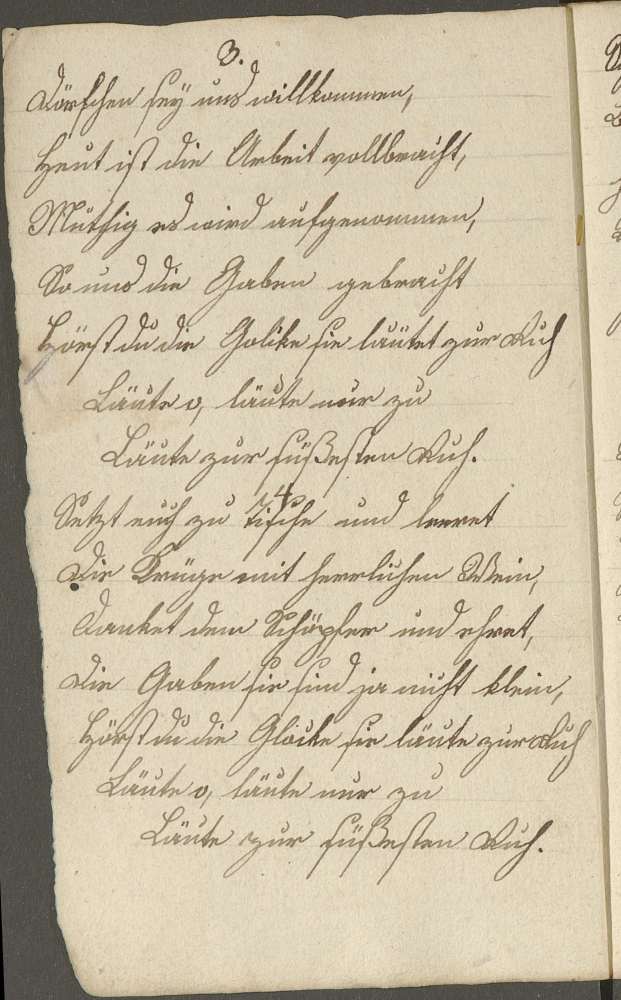 3.
Dörfchen sey uns willkommen,
Heut ist die Arbeit vollbracht,
Muthig es wird aufgenommen,
So uns die Gaben gebracht
Hörst du die Golcke sie läutet zur Ruh
Läute o, läute nur zu
Läute zur süßesten Ruh.
4
Setzt euch zu Tische und leeret
Die Krüge mit herrlichen Wein,
Danket dem Schöpfer und ehret,
Die Gaben sie sind ja nicht klein,
Hörst du die Glocke sie läute zur Ruh
Läute o, läute nur zu
Läute zur süßesten Ruh.